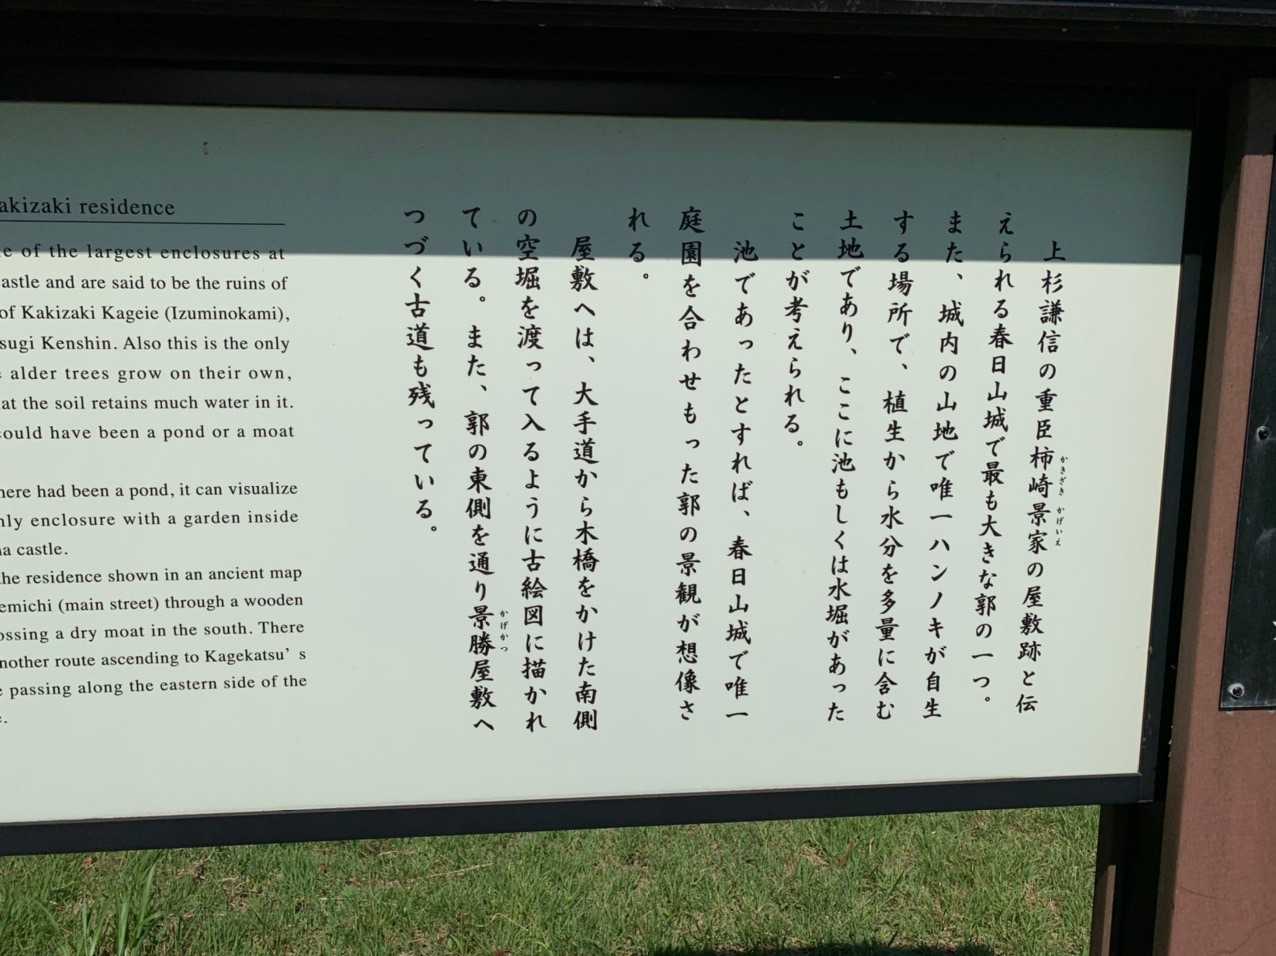 上杉謙信の重臣柿崎景家の屋敷跡と伝
かきざき かげいえ
えられる春日山城で最も大きな郭の一つ。
また、城内の山地で唯一ハンノキが自生
する場所で、植生から水分を多量に含む
土地であり、ここに池もしくは水堀があった
ことが考えられる。
池であったとすれば、春日山城で唯一
庭園を合わせもった郭の景観が想像さ
れる。
屋敷へは、大手道から木橋をかけた南側
の空堀を渡って入るように古絵図に描かれ
ている。また、郭の東側を通り景勝屋敷へ
かげかつ
つづく古道も残っている。
akizaki residence
e of the largest enclosures at
astle and are said to be the ruins of
of Kakizaki Kageie (Izuminokami),
sugi Kenshin. Also this is the only
alder trees grow on their own,
at the soil retains much water in it.
ould have been a pond or a moat
here had been a pond, it can visualize
nly enclosure with a garden inside
a castle.
he residence shown in an ancient map
emichi (main street) through a wooden
ossing a dry moat in the south. There
nother route ascending to Kagekatsu's
e passing along the eastern side of the